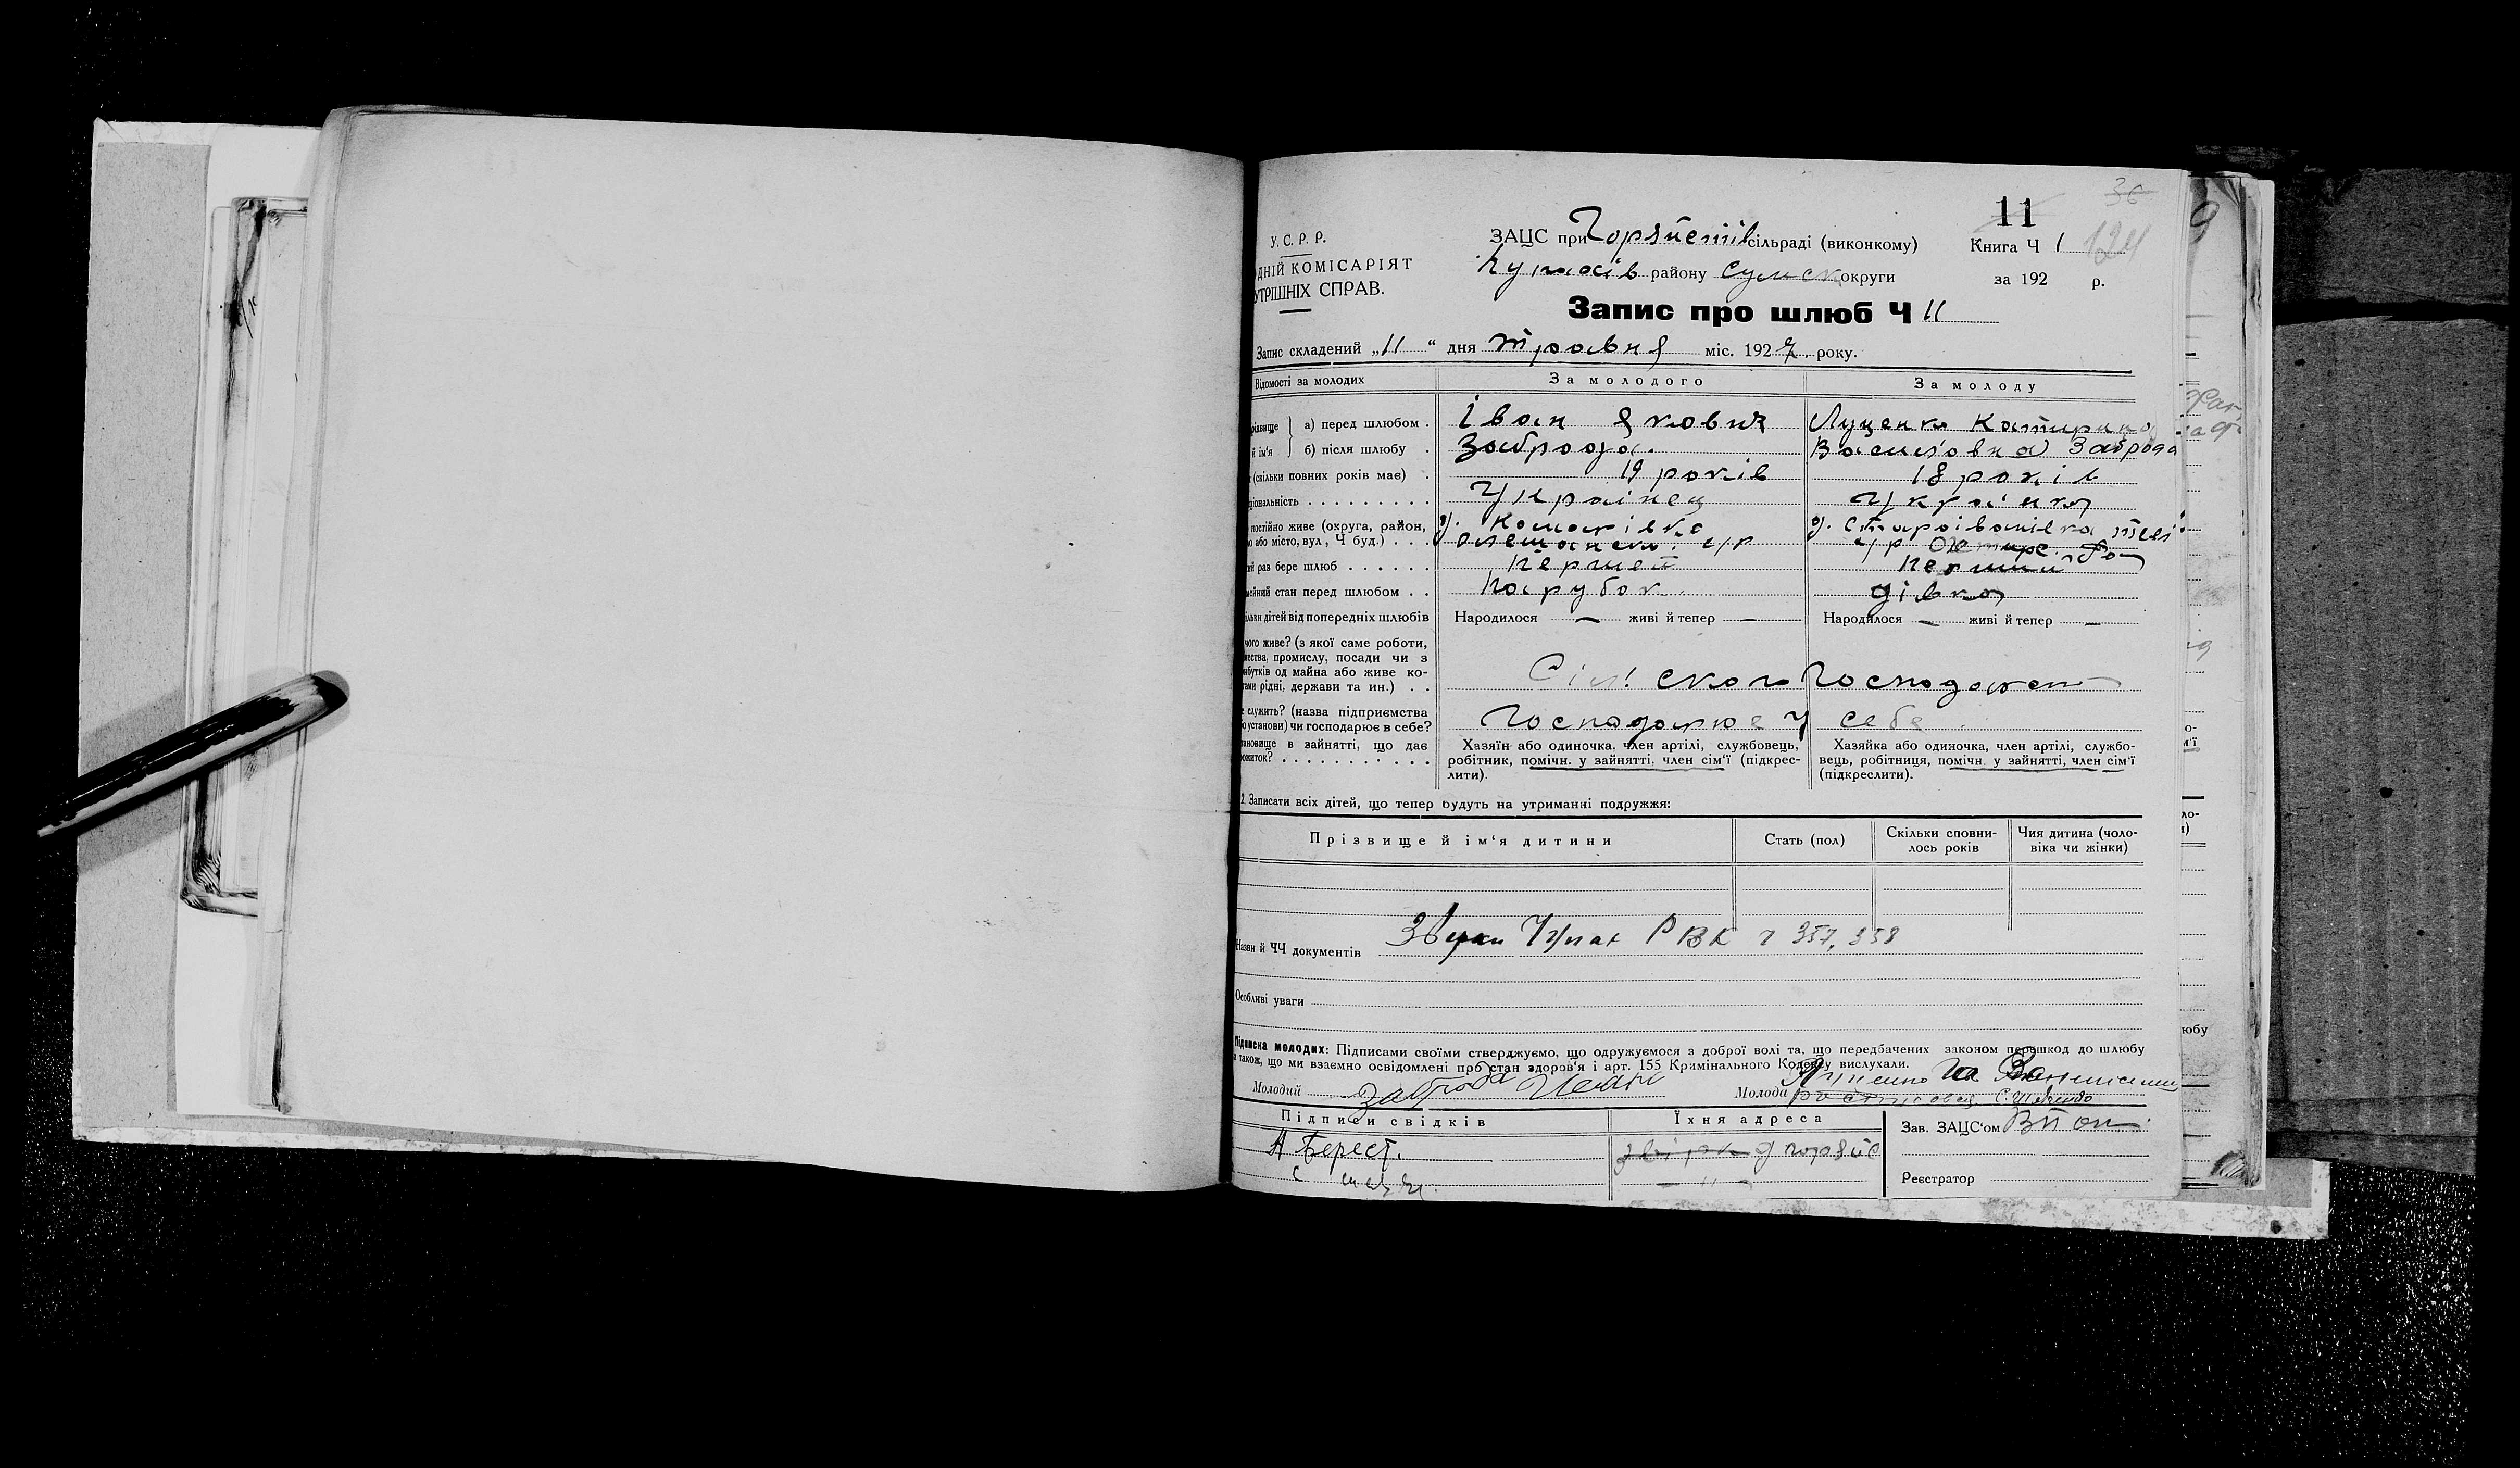 36
11
У. С. Р. Р.
ЗАЦС при Горяйстів сільраді (виконкому)
Книга Ч 1 124
ДНІЙ КОМІСАРІЯТ
УТРІШНІХ СПРАВ.
району Сумск округи
за 192 р.
Запис про шлюб Ч 11
Запис складений „11“ дня травня міс. 1927 року.
Відомості за молодих
За молодого
За молоду
а) перед шлюбом .
Іван Якович
Луценко Катирина
й ім'я б) після шлюбу .
Заброда.
Васил'овна Заброда
(скільки повних років має) .
19 років
18 років
ціональність . . . . . . . . .
Українец
Українка
постійно живе (округа, район,
х. Комарівка
х. Староіванівка
або місто, вул, Ч буд.) . . .
с/р
с/р
ий раз бере шлюб . . . . . .
Першей
Перший
мейний стан перед шлюбом . .
Парубок
дівка
льки дітей від попередніх шлюбів
Народилося — живі й тепер —
Народилося — живі й тепер —
чого живе? (з якої саме роботи,
мества, промислу, посади чи з
ибутків од майна або живе ко-
тами рідні, держави та ин.) . .
Сіл! ского Господарст
е служить? (назва підприємства
бо установи) чи господарює в себе?
Господарює у себе
тановище в зайнятті, що дає
ожиток? . . . . . . . . . . .
Хазяїн або одиночка, член артілі, службовець,
робітник, помічн. у зайнятті, член сім'ї (підкрес-
лити).
Хазяйка або одиночка, член артілі, службо-
вець, робітниця, помічн. у зайнятті, член сім'ї
(підкреслити).
2. Записати всіх дітей, що тепер будуть на утриманні подружжя:
Прізвище й ім'я дитини
Стать (пол)
Скільки сповни-
лось років
Чия дитина (чоло-
віка чи жінки)
Назви й ЧЧ документів
РВК 357, 358
Особливі уваги
Підписка молодих: Підписами своїми стверджуємо, що одружуємося з доброї волі та, що передбачених законом перешкод до шлюбу
а також, що ми взаємно освідомлені про стан здоров'я і арт. 155 Кримінального Кодексу вислухали.
Молодий Заброда Иван
Молода
Підписи свідків
Їхня адреса
Зав. ЗАЦС'ом
А Берест.
Реєстратор